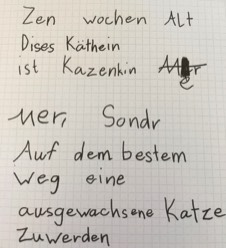 Zen wochen Alt
Dises Käthein
ist Kazenkin
mer, Sondr
Auf dem bestem
weg eine
ausgewachsene Katze
zuwerden